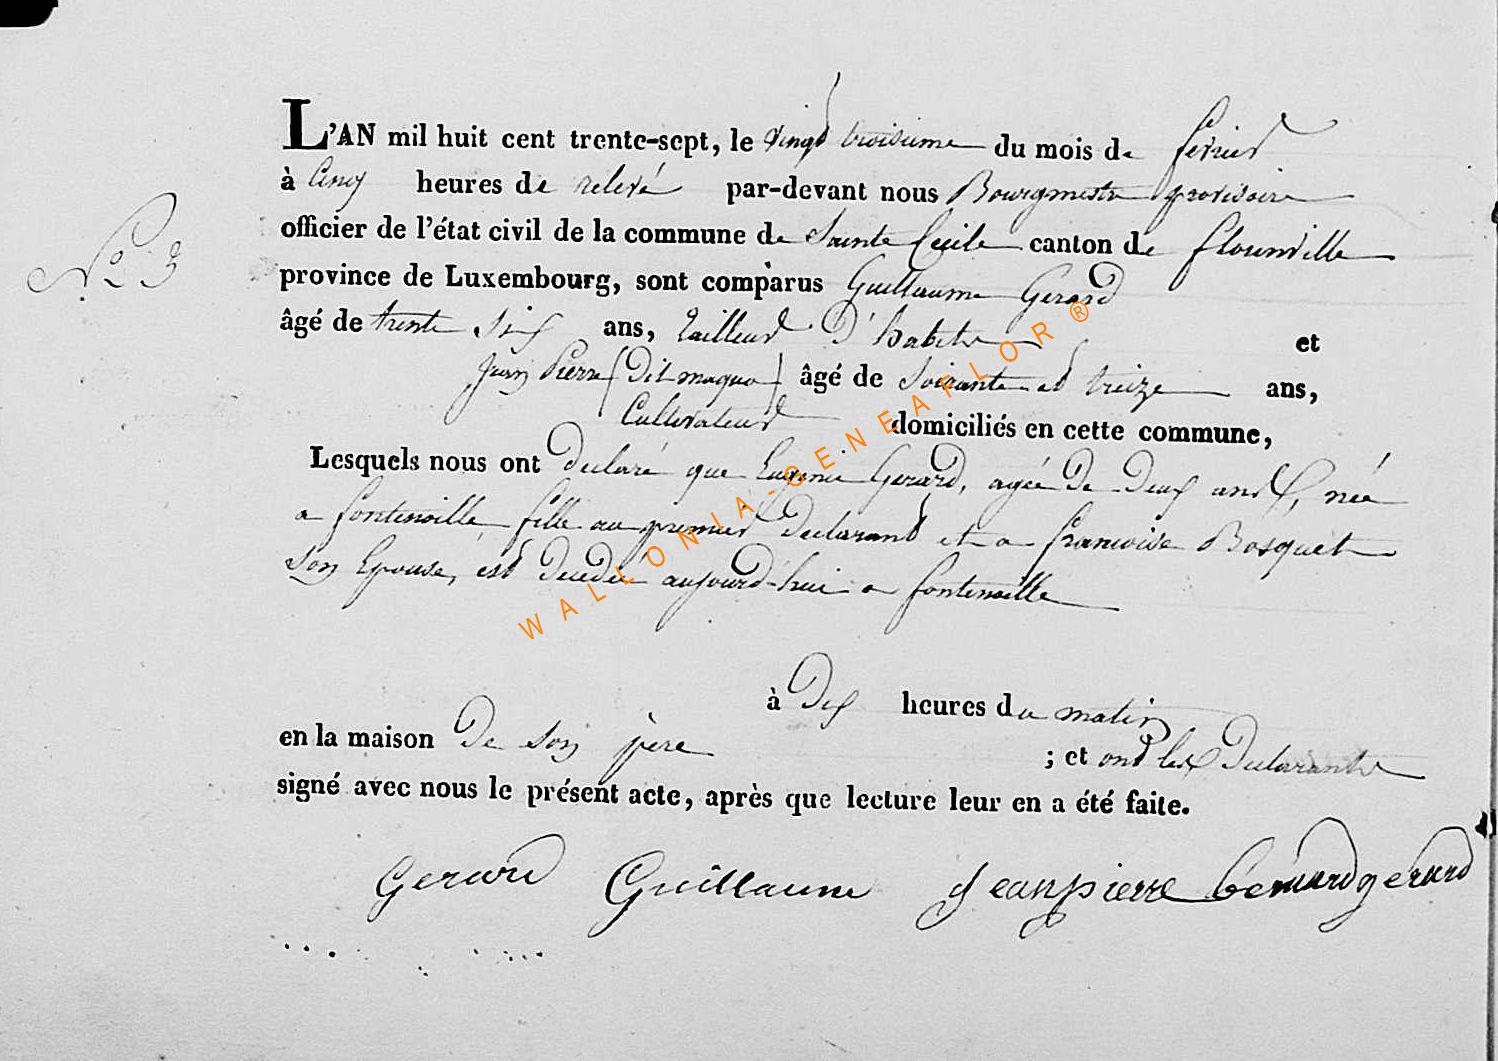 L'AN mil huit cent trente-sept, le vingt troisieme du mois de fevrier
à cinq heures de relevé par-devant nous Bourgmestre provisoire
N° 3
officier de l'état civil de la commune de Sainte Cecile canton de florenville
province de Luxembourg, sont comparus Guillaume Gerard
âgé de trente six ans, tailleur d'habits et
Jean Pierre (dit maqua) âgé de soixante et treize ans,
Cultivateur domiciliés en cette commune,
Lesquels nous ont declaré que Eugenie Gerard, agée de deux ans, née
a fontenoille fille au premier declarant et a francoise Bosquet
son Epouse, est decedée aujourd'hui a fontenoille
à dix heures du matin
en la maison de son père ; et ont les declarants
signé avec nous le présent acte, après que lecture leur en a été faite.
Gerard Guillaume Jeanpierre Gérard gerard
WALLONIA-GENEAFLOR®